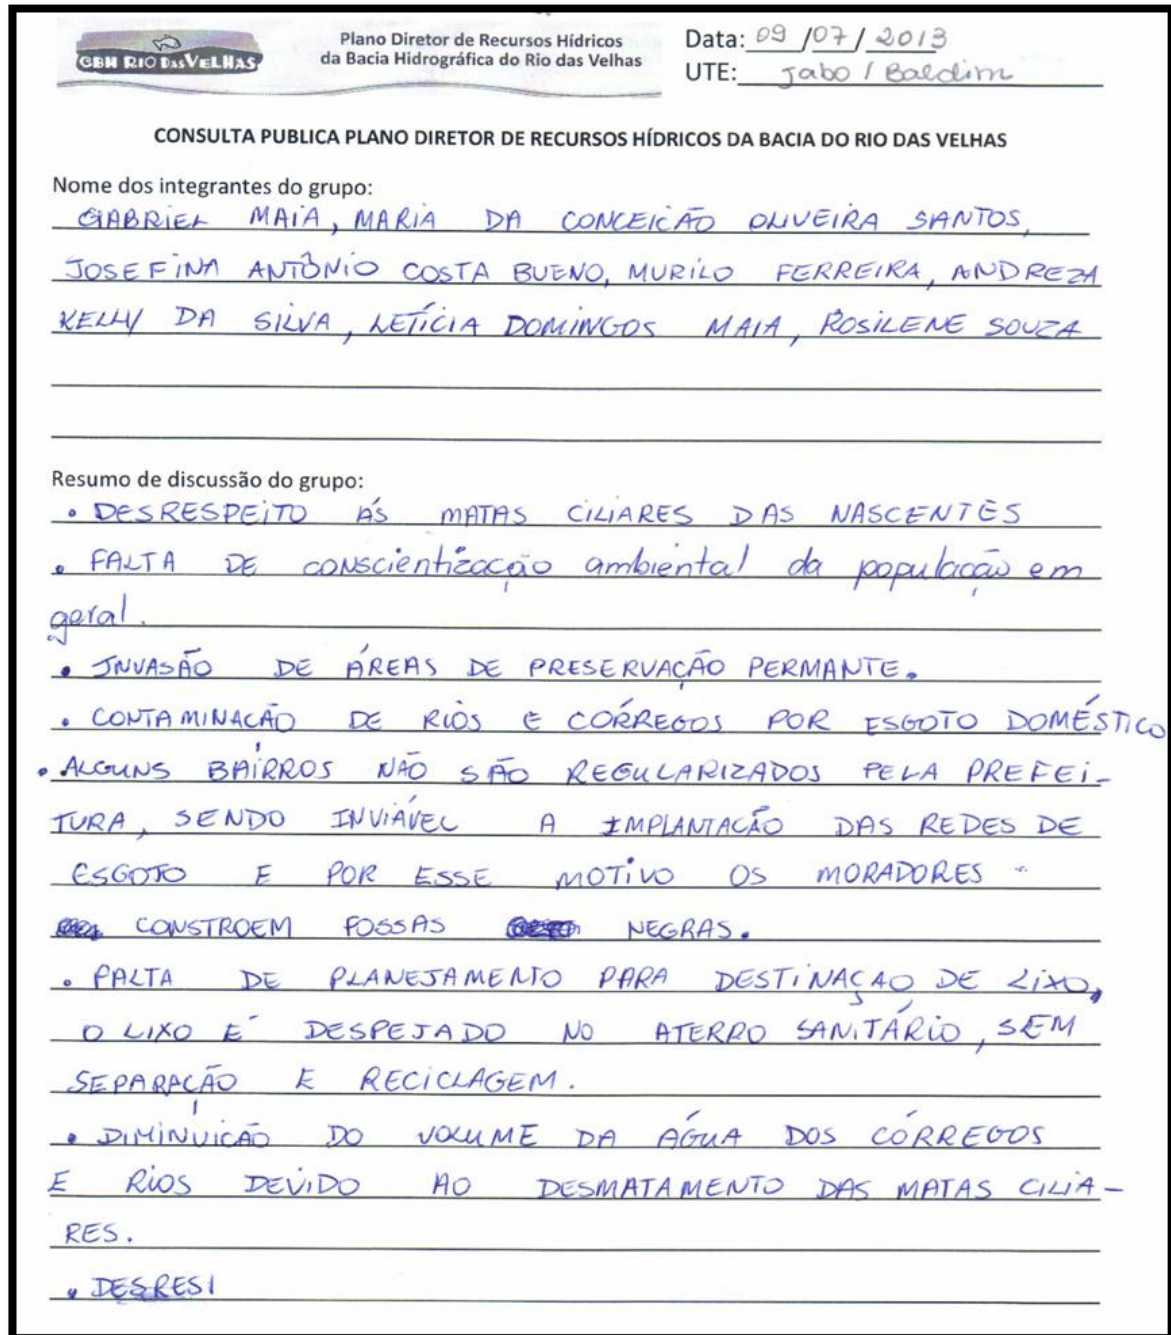 CBH RIO DAS VELHAS
Plano Diretor de Recursos Hídricos
da Bacia Hidrográfica do Rio das Velhas
Data: 09 / 07 / 2013
UTE: Jabo / Baldim
CONSULTA PUBLICA PLANO DIRETOR DE RECURSOS HÍDRICOS DA BACIA DO RIO DAS VELHAS
Nome dos integrantes do grupo:
GABRIEL MAIA, MARIA DA CONCEICÃO OLIVEIRA SANTOS,
JOSEFINA ANTÔNIO COSTA BUENO, MURILO FERREIRA, ANDREZA
KELLY DA SILVA, LETÍCIA DOMINGOS MAIA, ROSILENE SOUZA
Resumo de discussão do grupo:
• DESRESPEITO ÁS MATAS CILIARES DAS NASCENTES
• FALTA DE conscientização ambiental da população em
geral.
• INVASÃO DE ÁREAS DE PRESERVAÇÃO PERMANTE.
• CONTAMINACÃO DE RIOS E CÓRREGOS POR ESGOTO DOMÉSTICO
• ALGUNS BAIRROS NÃO SÃO REGULARIZADOS PELA PREFEI-
TURA, SENDO INVIÁVEL A IMPLANTACÃO DAS REDES DE
ESGOTO E POR ESSE MOTIVO OS MORADORES
CONSTROEM FOSSAS NEGRAS.
• FALTA DE PLANEJAMENTO PARA DESTINAÇAO DE LIXO,
O LIXO É DESPEJADO NO ATERRO SANITÁRIO, SEM
SEPARAÇÃO E RECICLAGEM.
• DIMINUIÇÃO DO VOLUME DA ÁGUA DOS CÓRREGOS
E RIOS DEVIDO AO DESMATAMENTO DAS MATAS CILIA-
RES.
• DESRESI